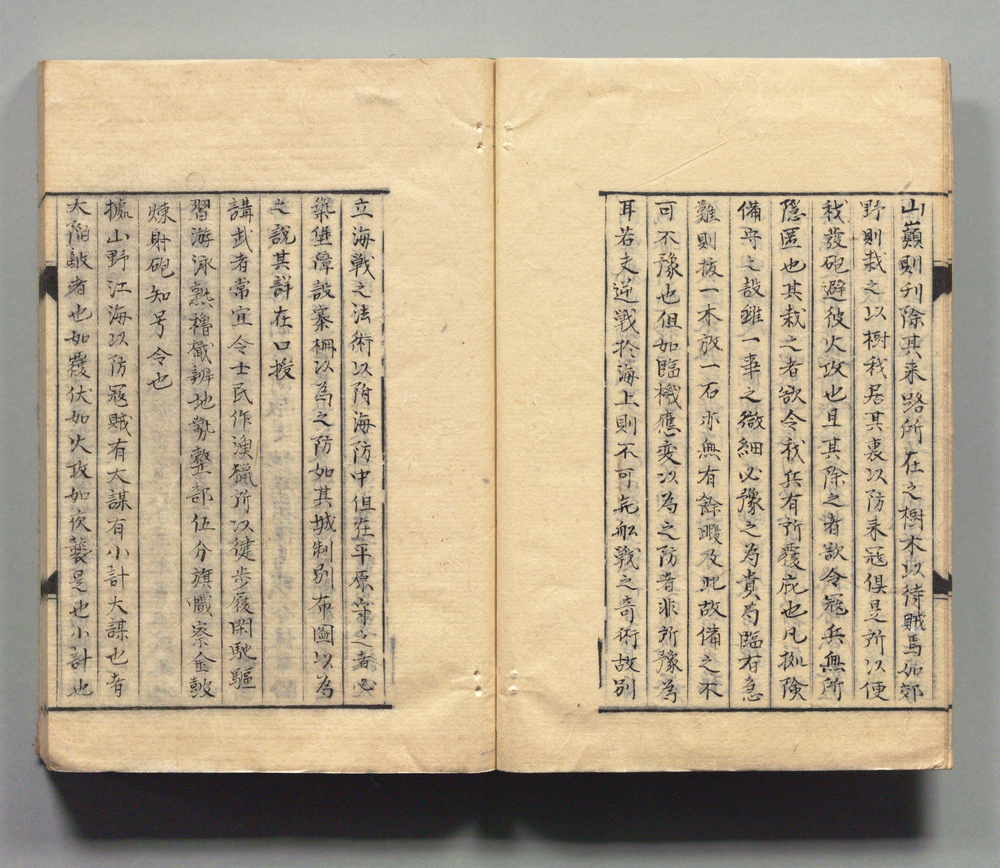 山巓則刊除其来路所在之樹木以待賊馬如郊
野則栽之以樹我居其裏以防来冦倶是所以便
我發砲避彼火攻也且其除之者欲令冦兵無所
隠匿也其栽之者欲令我兵有所覆庇也凡拠険
備守之設雖一事之微細必豫之為貴苟臨有急
難則抜一木放一石亦無有餘暇及此故備之不
可不豫也但如臨機應変以為之防者非所豫為
耳若夫逆戦於海上則不可無舩戦之奇術故別
立海戦之法術以附海防中但在平原守之者必
築堡障設寨柵以為之防如其城制別布圖以為
之說其詳在口授
講武者常宜令士民作漁獵所以健歩履閑馳驅
習游泳熟櫓檝辨地勢整部伍分旗幟察金鼓
煉射砲知号令也
據山野江海以防冦賊有大謀有小計大謀也者
大陷敵者也如覆伏如火攻如夜襲是也小計也